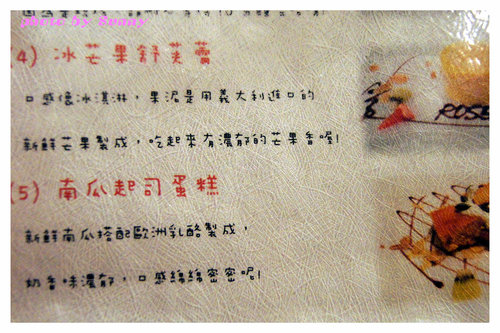 photo by Bunny
(4) 冰芒果舒芙蕾
口感像冰淇淋，果泥是用義大利進口的
新鮮芒果製成，吃起來有濃郁的芒果香喔!
ROSE
(5) 南瓜起司蛋糕
新鮮南瓜搭配歐洲乳酪製成，
奶香味濃郁，口感綿綿密密呢!